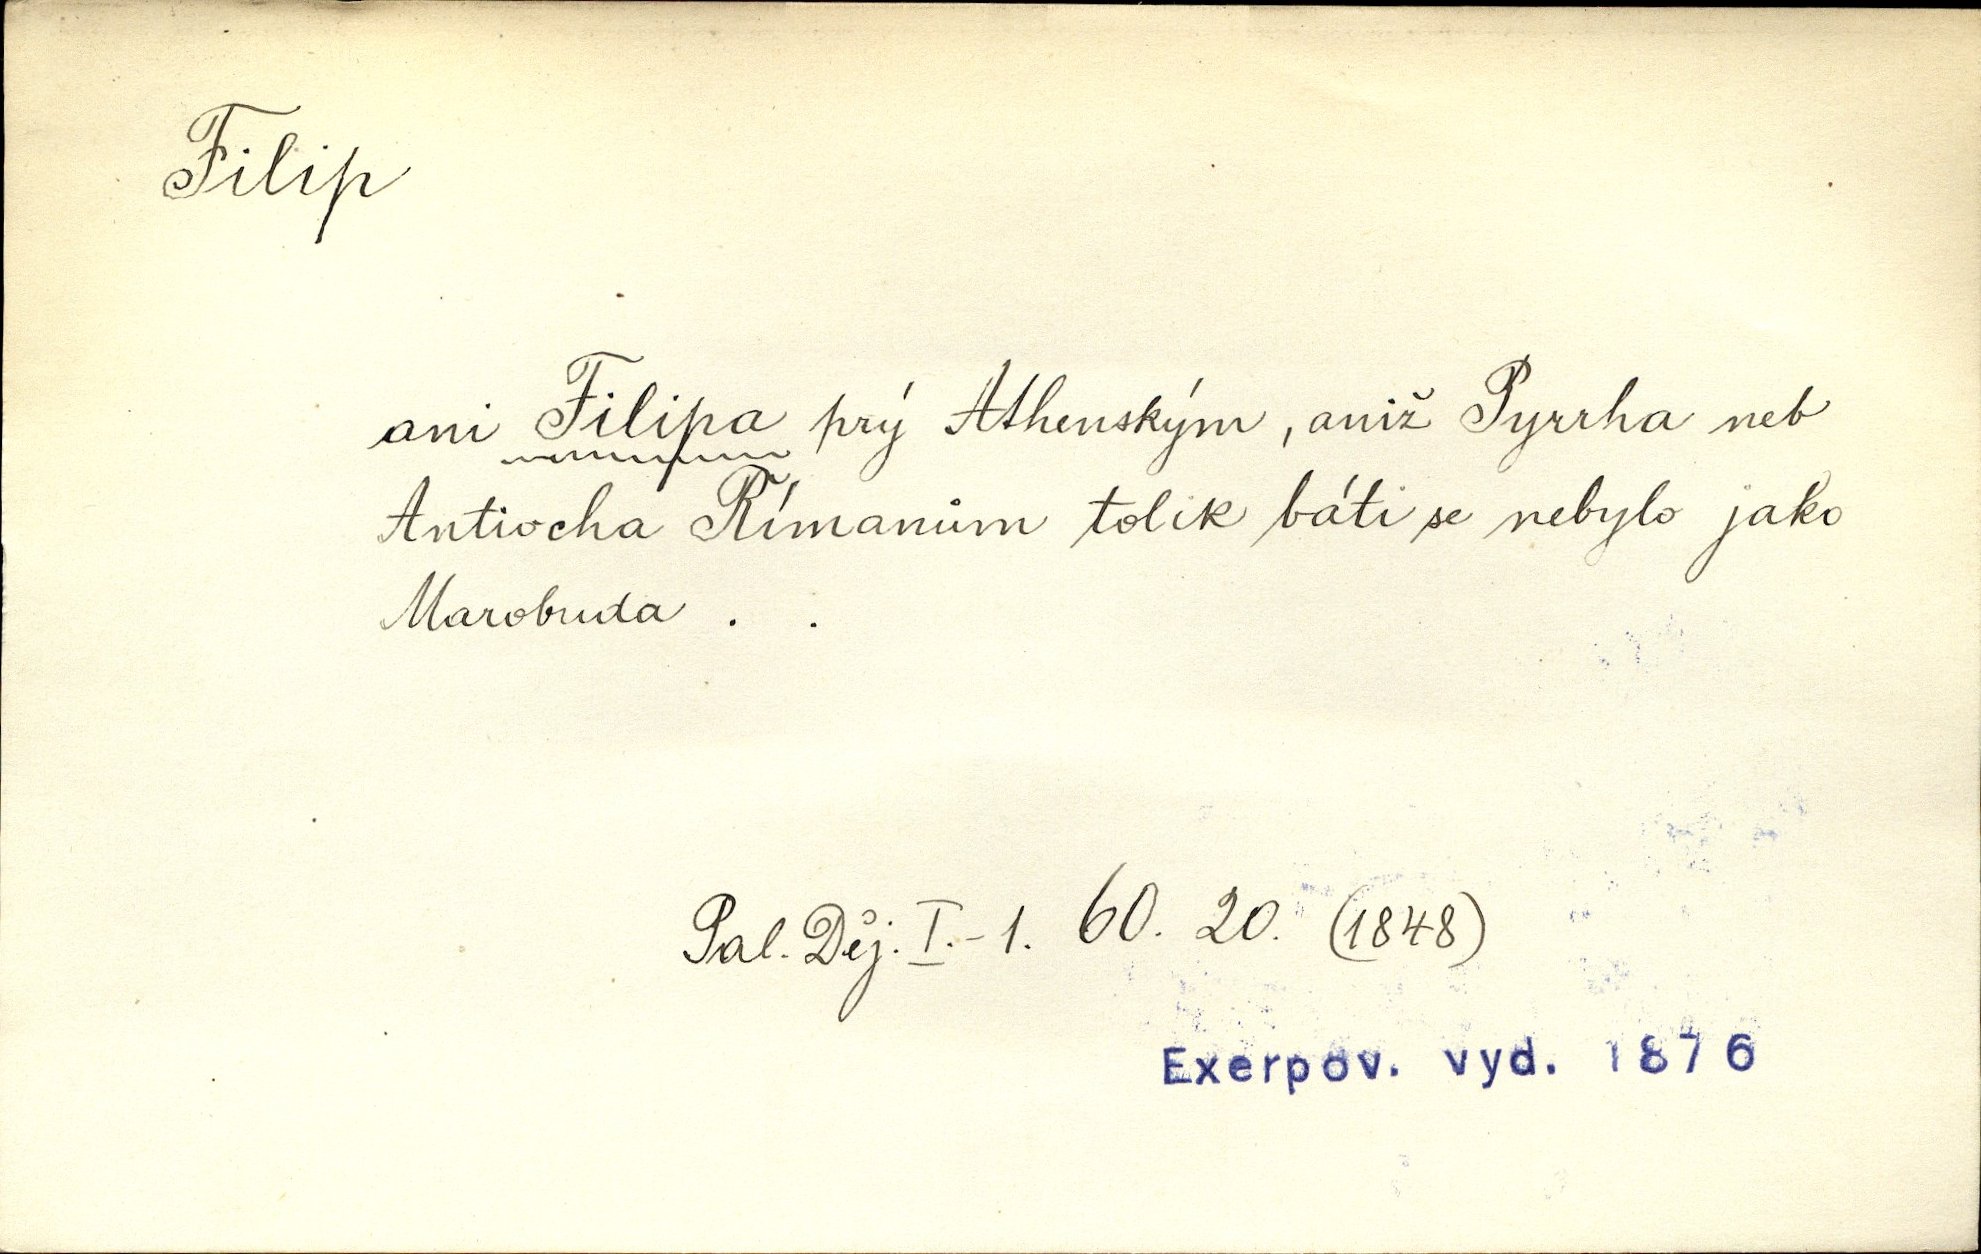 Filip
ani Filipa prý Athenským, aniž Pyrrha neb
Antiocha Římanům tolik báti se nebylo jako
Marobuda . .
Pal. Děj. I.-1. 60. 20. (1848)
Exerpov. vyd. 1876